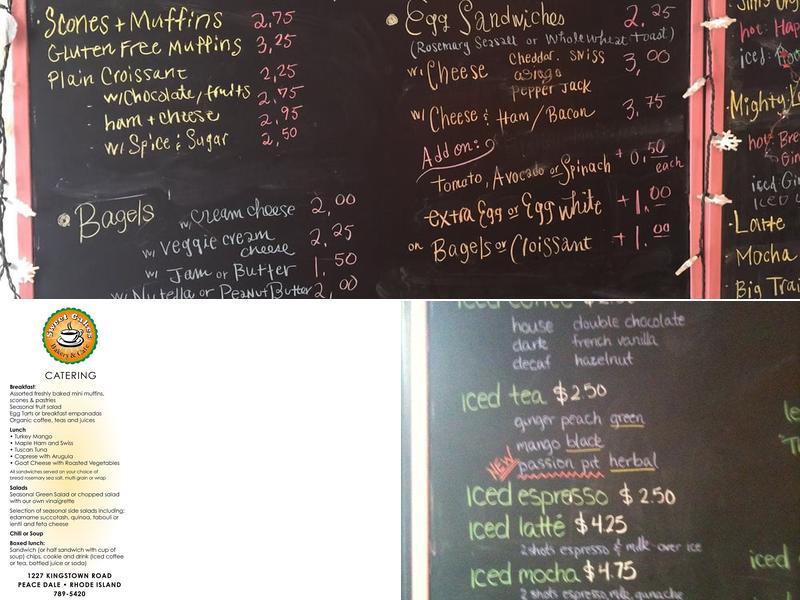 Scones + Muffins 2,75
Gluten Free Muffins 3,25
Plain Croissant 2,25
- w/Chocolate/fruits 2,75
- ham + cheese 2,95
- w/Spice & Sugar 2,50
Bagels w/ cream cheese 2,00
w/ Veggie cream cheese 2,25
w/ Jam or Butter 1,50
w/ Nutella or Peanut Butter 2,00
Egg Sandwiches 2,25
(Rosemary Seasalt or Whole Wheat Toast)
w/ Cheese Cheddar, Swiss 3,00
asiago
pepper Jack
w/ Cheese & Ham/Bacon 3,75
Add on:
Tomato, Avocado or Spinach + 0,50 each
extra Egg or Egg white + 1.00
on Bagels or Croissant + 1.00
hot:
iced:
Mighty
hot:
iced
Latte
Mocha
Big
Sweet Cakes
Bakery & Cafe
CATERING
Breakfast:
Assorted freshly baked mini muffins,
scones & pastries
Seasonal fruit salad
Egg Tarts or breakfast empanadas
Organic coffee, teas and juices
Lunch
• Turkey Mango
• Maple Ham and Swiss
• Tuscan Tuna
• Caprese with Arugula
• Goat Cheese with Roasted Vegetables
All sandwiches served on your choice of
bread rosemary sea salt, multi grain or wrap
Salads
Seasonal Green Salad or chopped salad
with our own vinaigrette
Selection of seasonal side salads including:
edamame succotash, quinoa, tabouli or
lentil and feta cheese
Chili or Soup
Boxed lunch:
Sandwich (or half sandwich with cup of
soup) chips, cookie and drink (iced coffee
or tea, bottled juice or soda)
1227 KINGSTOWN ROAD
PEACE DALE • RHODE ISLAND
789-5420
iced coffee
house double chocolate
dark french vanilla
decaf hazelnut
iced tea $2.50
ginger peach green
mango black
NEW passion pit herbal
iced espresso $2.50
iced latté $4.25
2 shots espresso & milk over ice
iced mocha $4.75
2 shots espresso, milk, ganache
iced